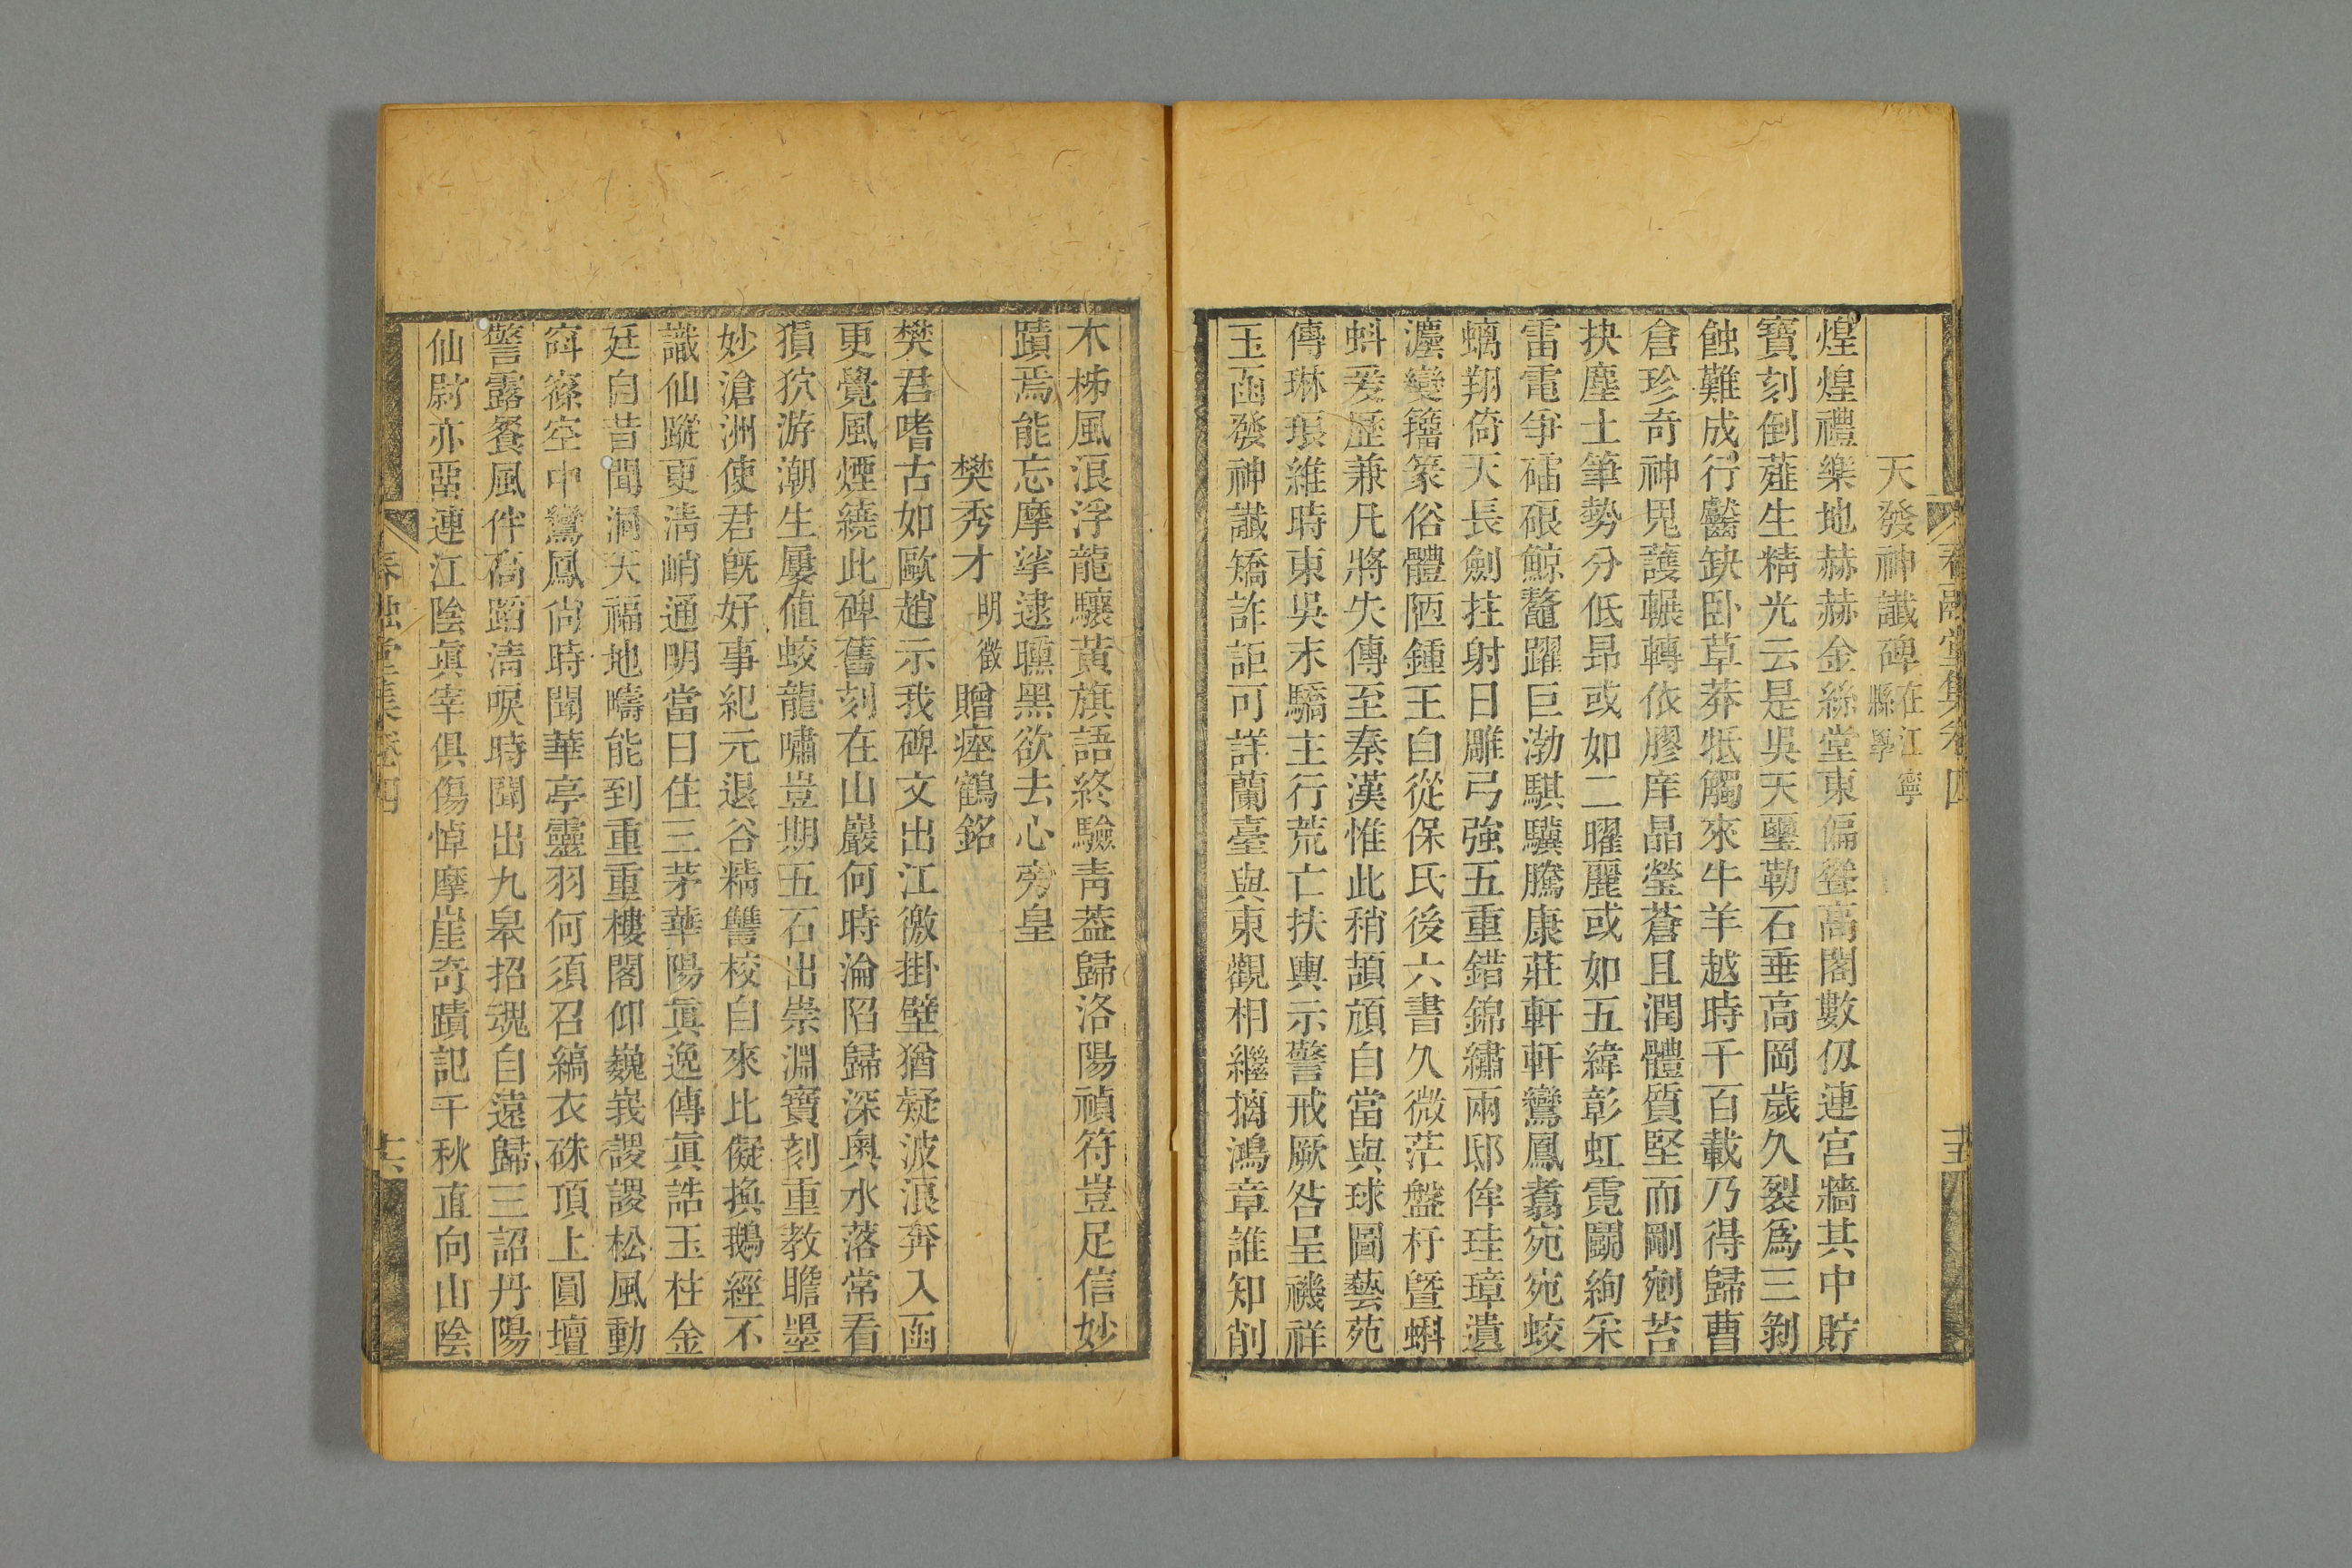 天發神讖碑在江寧縣學
煌煌禮樂地赫赫金絲堂東偏聳高閣數仭連宫牆其中貯
寶刻倒薤生精光云是吳天璽勒石垂高岡歲久裂爲三剝
蝕難成行齾缺卧草莽牴觸來牛羊越時千百載乃得歸曹
倉珍奇神鬼護輾轉依膠庠晶瑩蒼且潤體質堅而剛剜苔
抉塵土筆勢分低昻或如二曜麗或如五緯彰虹霓鬭絢采
雷電爭礌硠鯨鼇躍巨渤騏驥騰康莊軒軒鸞鳳翥宛宛蛟
螭翔倚天長劍拄射日雕弓強五重錯錦繡兩邸侔珪璋遺
灋變籒篆俗體陋鍾王自從保氏後六書久微茫盤杅曁蝌
蚪爰歷兼凡將失傳至秦漢惟此稍頡頏自當與球圖藝苑
傳琳琅維時東吳末驕主行荒亡扶輿示警戒厥咎呈禨祥
玉函發神讖矯詐詎可詳蘭臺與東觀相繼摛鴻章誰知削
木柹風浪浮龍驤黃旗語終驗靑葢歸洛陽禎符豈足信妙
蹟焉能忘摩挲逮曛黑欲去心旁皇
樊秀才明徵贈瘞鶴銘
樊君嗜古如歐趙示我碑文出江徼掛壁猶疑波浪奔入函
更覺風煙繞此碑舊刻在山巖何時淪陷歸深奧水落常看
狽犺游潮生屢值蛟龍嘯豈期五石出崇淵寶刻重教瞻墨
妙滄洲使君旣好事紀元退谷精讐校自來比儗換鵝經不
識仙蹤更淸峭通明當日住三茅華陽眞逸傳眞誥玉柱金
廷自昔聞洞天福地疇能到重重樓閣仰巍峩謖謖松風動
窅窱空中鸞鳳尙時聞華亭靈羽何須召縞衣硃頂上圓壇
警露餐風伴高蹈淸唳時聞出九皋招魂自遠歸三詔丹陽
仙尉亦堊連江陰眞宰俱傷悼摩崖奇蹟記千秋直向山陰
春融堂集卷四 十五
春融堂集卷四 十六